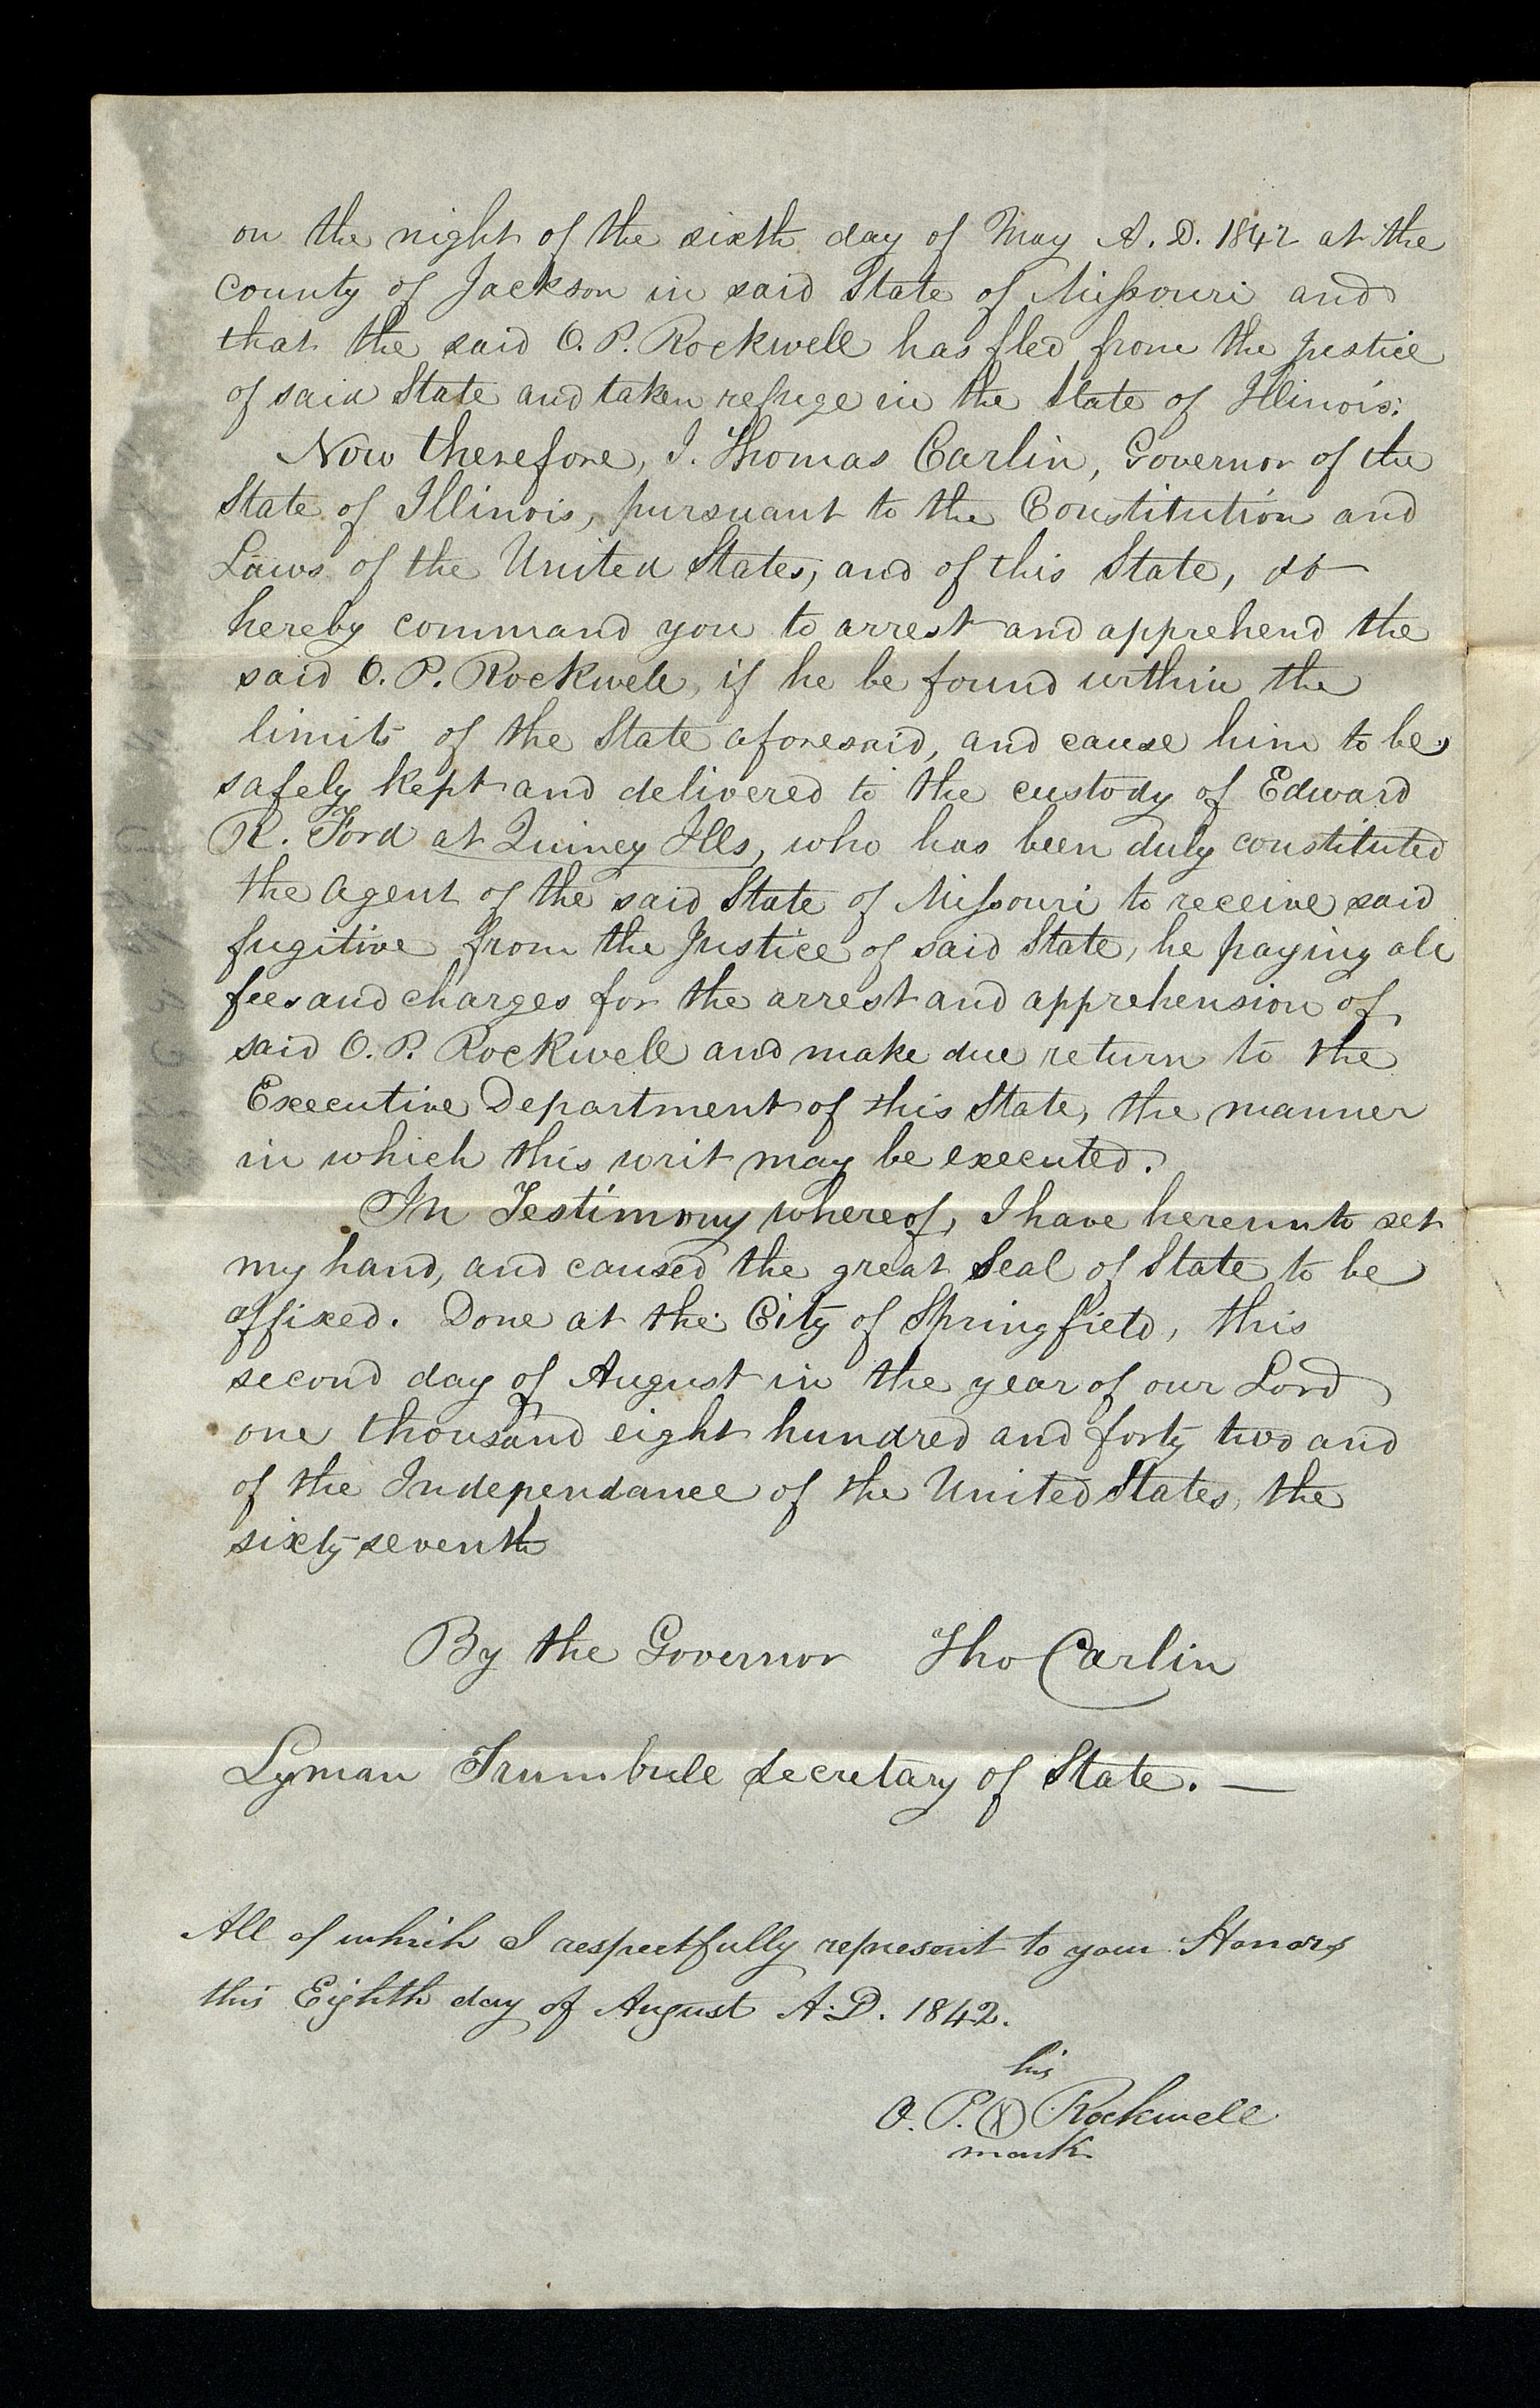 on the night of the sixth day of May A. D. 1842 at the
county of Jackson in said State of Missouri and
that the said O. P. Rockwell has fled from the justice
of said State and taken refuge in the State of Illinois:
Now therefore, I. Thomas Carlin, Governor of the
State of Illinois, pursuant to the Constitution and
Laws of the United States, and of this State, do
hereby command you to arrest and apprehend the
said O. P. Rockwell, if he be found within the
limits of the State aforesaid, and cause him to be
safely kept and delivered to the custody of Edward
R. Ford at Quincy Ills, who has been duly constituted
the agent of the said State of Missouri to receive said
fugitive from the Justice of said State, he paying all
fees and charges for the arrest and apprehension of
said O. P. Rockwell and make due return to the
Executive Department of this State, the manner
in which this writ may be executed.
In Testimony whereof, I have hereunto set
my hand, and caused the great Seal of State to be
affixed. Done at the City of Springfield, this
second day of August in the year of our Lord
one thousand eight hundred and forty two and
of the Independance of the United States, the
sixty-seventh
By the Governor Tho Carlin
Lyman Trumbull Secretary of State. —
All of which I respectfully represent to your Honors
this Eighth day of August A. D. 1842.
his
O. P. (X) Rockwell
mark